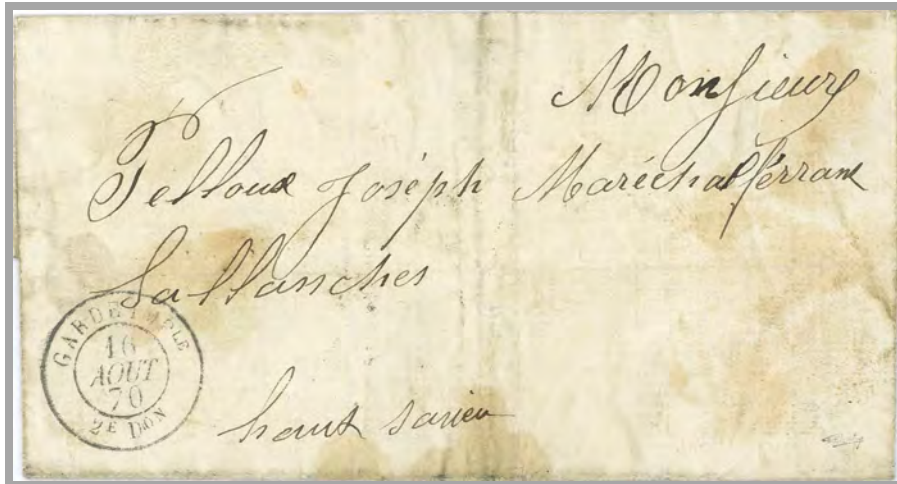 Monsieur
Pelloux Joséph Maréchal férrant
Sallanches
haut savieu
GARDE IMPLE
16
AOUT
70
2E DON